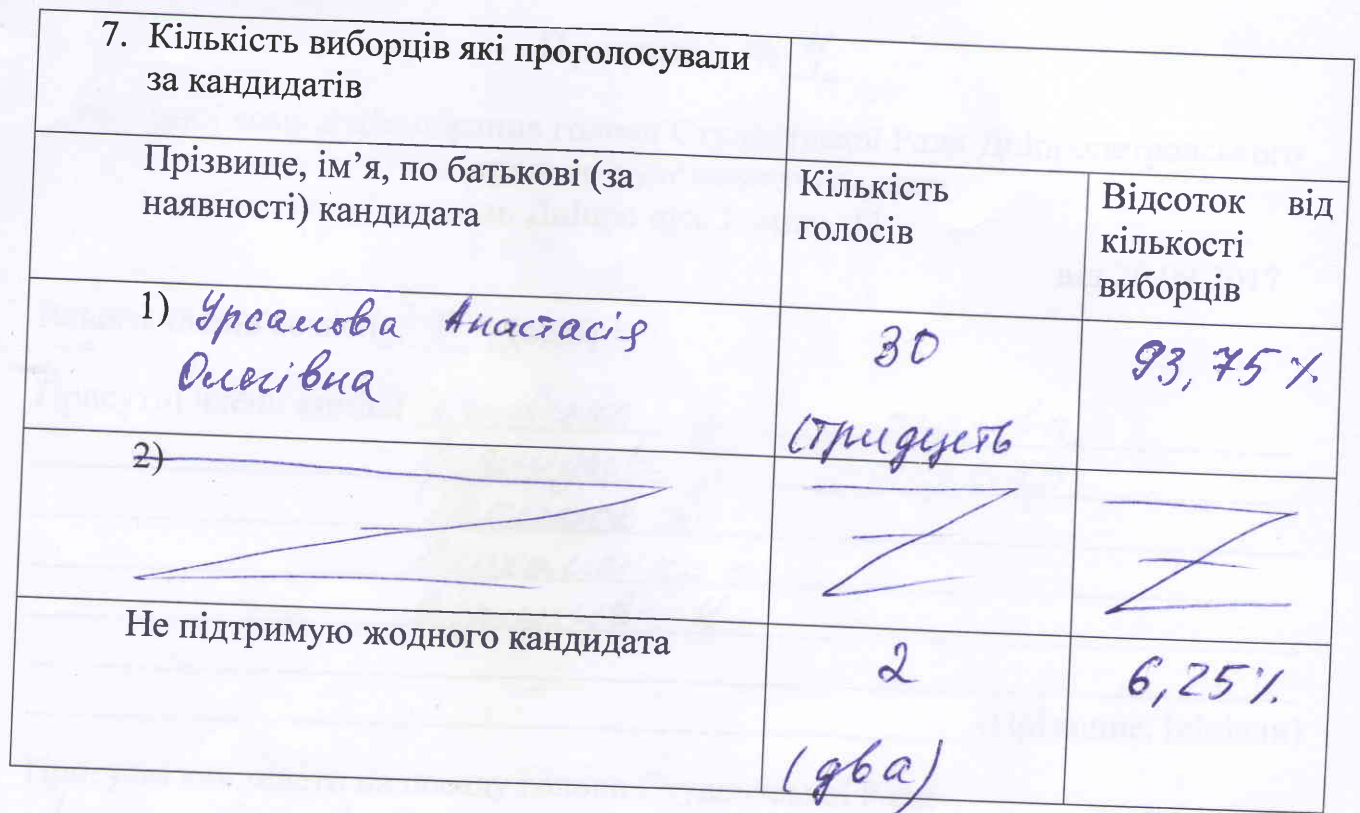 7. Кількість виборців які проголосували
за кандидатів
Прізвище, ім’я, по батькові (за
наявності) кандидата
Кількість
голосів
Відсоток від
кількості
виборців
1) Урсалова Анастасія
Олегівна
30
(тридцять
93,75 %
2)
Не підтримую жодного кандидата
2
(два)
6,25 %